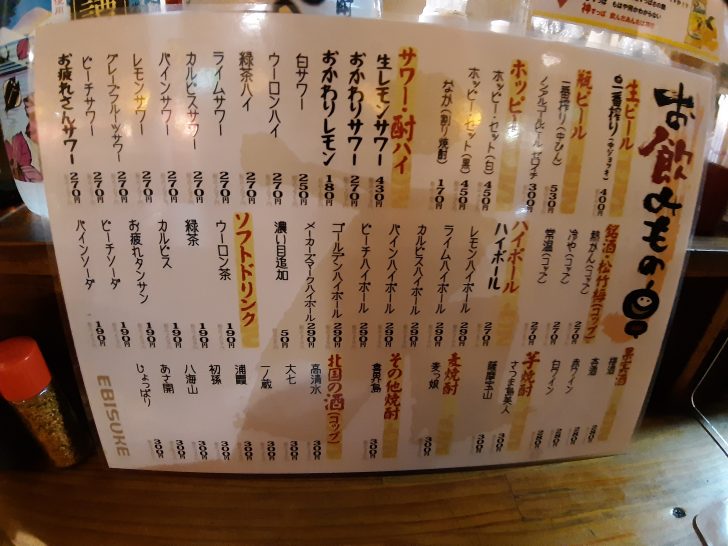 お飲みもの
生ビール
一番搾り(中ジョッキ) 400円
瓶ビール
一番搾り(中びん) 530円
ノンアルコールビール ゼロイチ 300円
ホッピー
ホッピー・セット(白) 450円
ホッピー・セット(黒) 450円
なか(割り焼酎) 170円
サワー・酎ハイ
生レモンサワー 430円
おかわりサワー 270円
おかわりレモン 180円
白サワー 250円
ウーロンハイ 270円
緑茶ハイ 270円
ライムサワー 270円
カルピスサワー 270円
パインサワー 270円
レモンサワー 270円
グレープフルーツサワー 270円
ピーチサワー 270円
お疲れさんサワー 270円
銘酒・松竹梅(コップ)
熱かん(コップ) 270円
冷や(コップ) 270円
常温(コップ) 270円
ハイボール
ハイボール 270円
レモンハイボール 290円
ライムハイボール 290円
カルピスハイボール 290円
パインハイボール 290円
ピーチハイボール 290円
ゴールデンハイボール 290円
メーカーズマークハイボール 290円
濃い目追加 50円
ソフトドリンク
ウーロン茶 190円
緑茶 190円
カルピス 190円
お疲れタンサン 190円
ピーチソーダ 190円
パインソーダ 190円
果実酒
梅酒 280円
杏酒 280円
赤ワイン 280円
白ワイン 280円
芋焼酎
さつま島美人 300円
薩摩宝山 300円
麦焼酎
麦っ娘 300円
その他焼酎
喜界島 300円
北国の酒(コップ)
高清水 300円
大七 300円
一ノ蔵 300円
浦霞 300円
初孫 300円
八海山 300円
あさ開 300円
じょっぱり 300円
EBISUKE